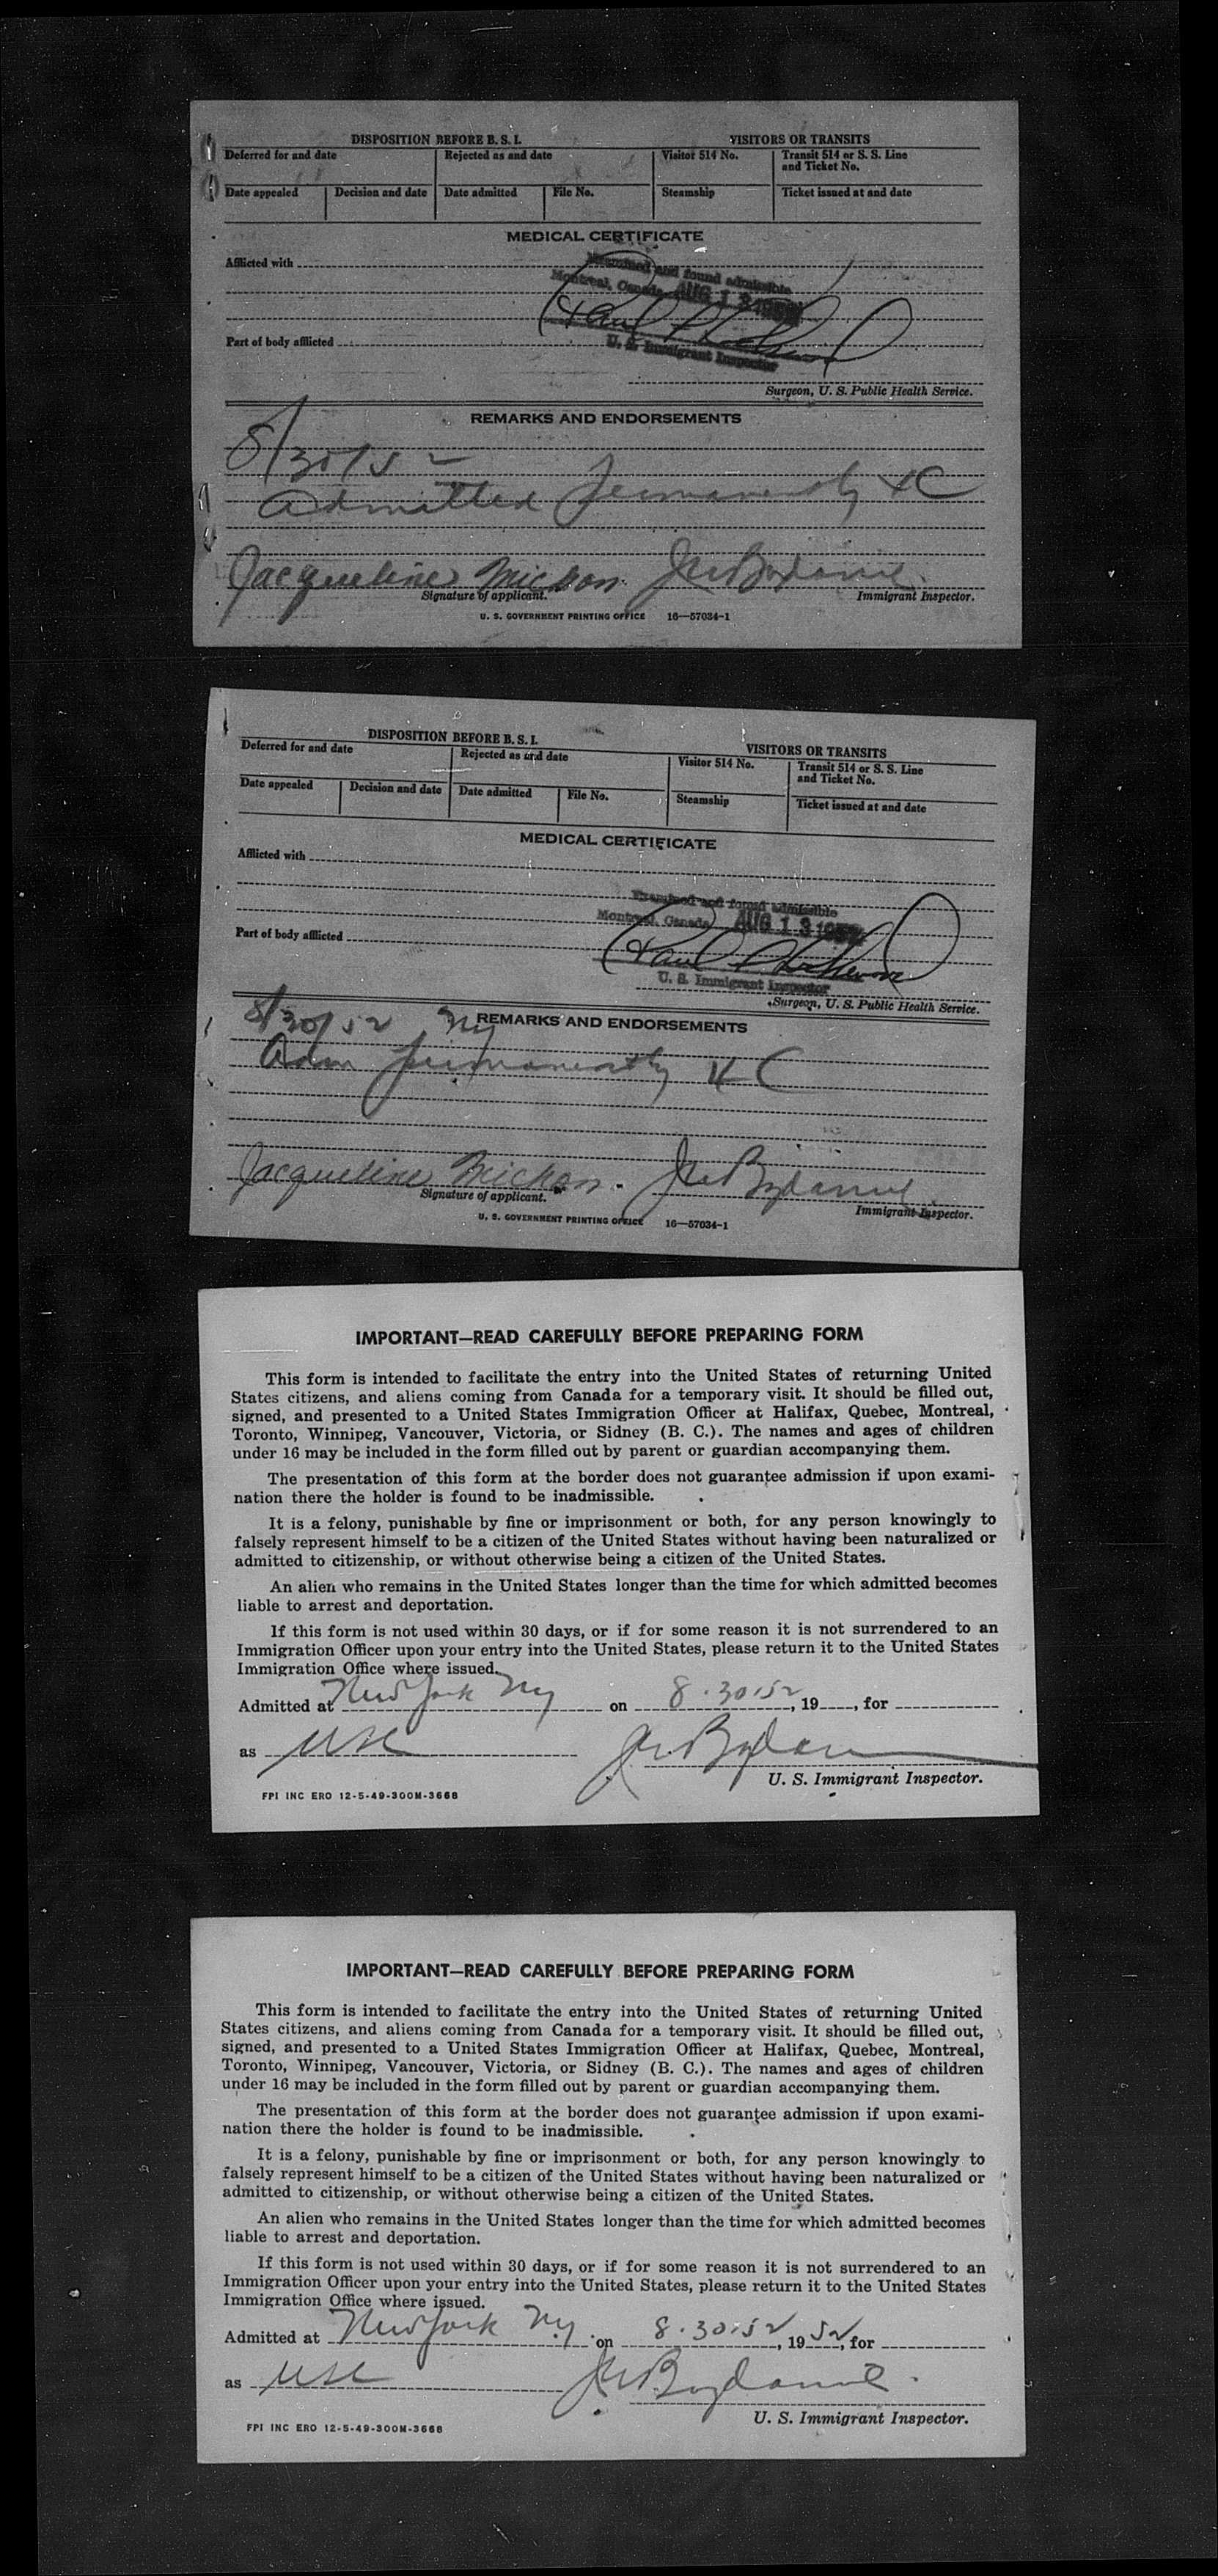 DISPOSITION BEFORE B. S. I. VISITORS OR TRANSITS
Deferred for and date Rejected as and date Visitor 514 No. Transit 514 or S. S. Line and Ticket No.
Date appealed Decision and date Date admitted File No. Steamship Ticket issued at and date
MEDICAL CERTIFICATE
Afflicted with
Examined and found admissible
Montreal, Canada AUG 13 1952
Part of body afflicted
U. S. Immigrant Inspector
Surgeon, U. S. Public Health Service.
REMARKS AND ENDORSEMENTS
8/30/52
Admitted permanently
Jacqueline Mickon
Signature of applicant. Immigrant Inspector.
U. S. GOVERNMENT PRINTING OFFICE 16—57034-1
DISPOSITION BEFORE B. S. I. VISITORS OR TRANSITS
Deferred for and date Rejected as and date Visitor 514 No. Transit 514 or S. S. Line and Ticket No.
Date appealed Decision and date Date admitted File No. Steamship Ticket issued at and date
MEDICAL CERTIFICATE
Afflicted with
Examined and found admissible
Montreal, Canada AUG 13 1952
Part of body afflicted
U. S. Immigrant Inspector
Surgeon, U. S. Public Health Service.
8/30/52 NY REMARKS AND ENDORSEMENTS
Adm permanently
Jacqueline Mickon
Signature of applicant. Immigrant Inspector.
U. S. GOVERNMENT PRINTING OFFICE 16—57034-1
IMPORTANT—READ CAREFULLY BEFORE PREPARING FORM
This form is intended to facilitate the entry into the United States of returning United
States citizens, and aliens coming from Canada for a temporary visit. It should be filled out,
signed, and presented to a United States Immigration Officer at Halifax, Quebec, Montreal,
Toronto, Winnipeg, Vancouver, Victoria, or Sidney (B. C.). The names and ages of children
under 16 may be included in the form filled out by parent or guardian accompanying them.
The presentation of this form at the border does not guarantee admission if upon exami-
nation there the holder is found to be inadmissible.
It is a felony, punishable by fine or imprisonment or both, for any person knowingly to
falsely represent himself to be a citizen of the United States without having been naturalized or
admitted to citizenship, or without otherwise being a citizen of the United States.
An alien who remains in the United States longer than the time for which admitted becomes
liable to arrest and deportation.
If this form is not used within 30 days, or if for some reason it is not surrendered to an
Immigration Officer upon your entry into the United States, please return it to the United States
Immigration Office where issued.
Admitted at New York NY on 8.30.52, 19, for
as USC
U. S. Immigrant Inspector.
FPI INC ERO 12-5-49-300M-3668
IMPORTANT—READ CAREFULLY BEFORE PREPARING FORM
This form is intended to facilitate the entry into the United States of returning United
States citizens, and aliens coming from Canada for a temporary visit. It should be filled out,
signed, and presented to a United States Immigration Officer at Halifax, Quebec, Montreal,
Toronto, Winnipeg, Vancouver, Victoria, or Sidney (B. C.). The names and ages of children
under 16 may be included in the form filled out by parent or guardian accompanying them.
The presentation of this form at the border does not guarantee admission if upon exami-
nation there the holder is found to be inadmissible.
It is a felony, punishable by fine or imprisonment or both, for any person knowingly to
falsely represent himself to be a citizen of the United States without having been naturalized or
admitted to citizenship, or without otherwise being a citizen of the United States.
An alien who remains in the United States longer than the time for which admitted becomes
liable to arrest and deportation.
If this form is not used within 30 days, or if for some reason it is not surrendered to an
Immigration Officer upon your entry into the United States, please return it to the United States
Immigration Office where issued.
Admitted at New York NY on 8.30.52, 1952, for
as USC
U. S. Immigrant Inspector.
FPI INC ERO 12-5-49-300M-3668